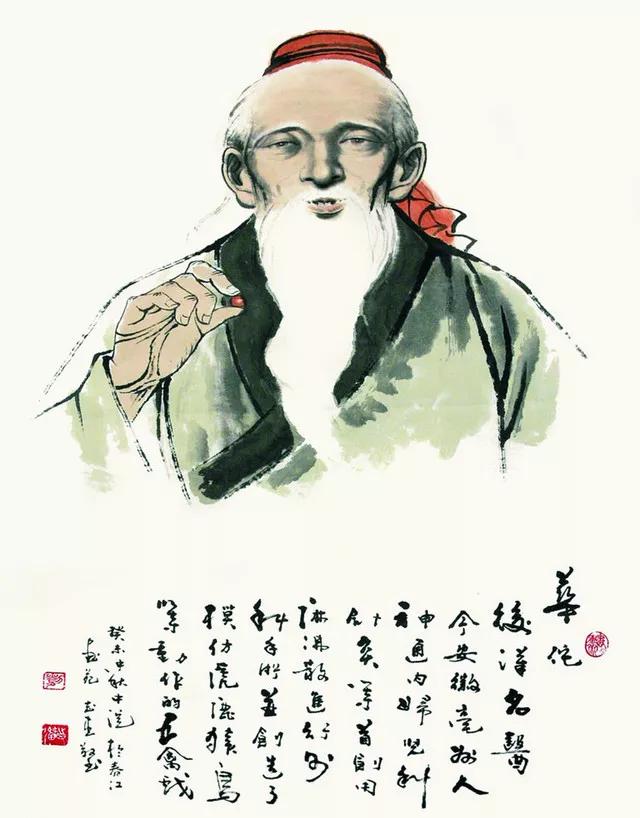 華佗
後漢名醫
今安徽亳州人
神通内婦児科
针灸等首創用
麻沸散進行外
科手術並創造了
模仿虎鹿猿鳥
等動作的五禽戏
癸未中秋中浣於春江